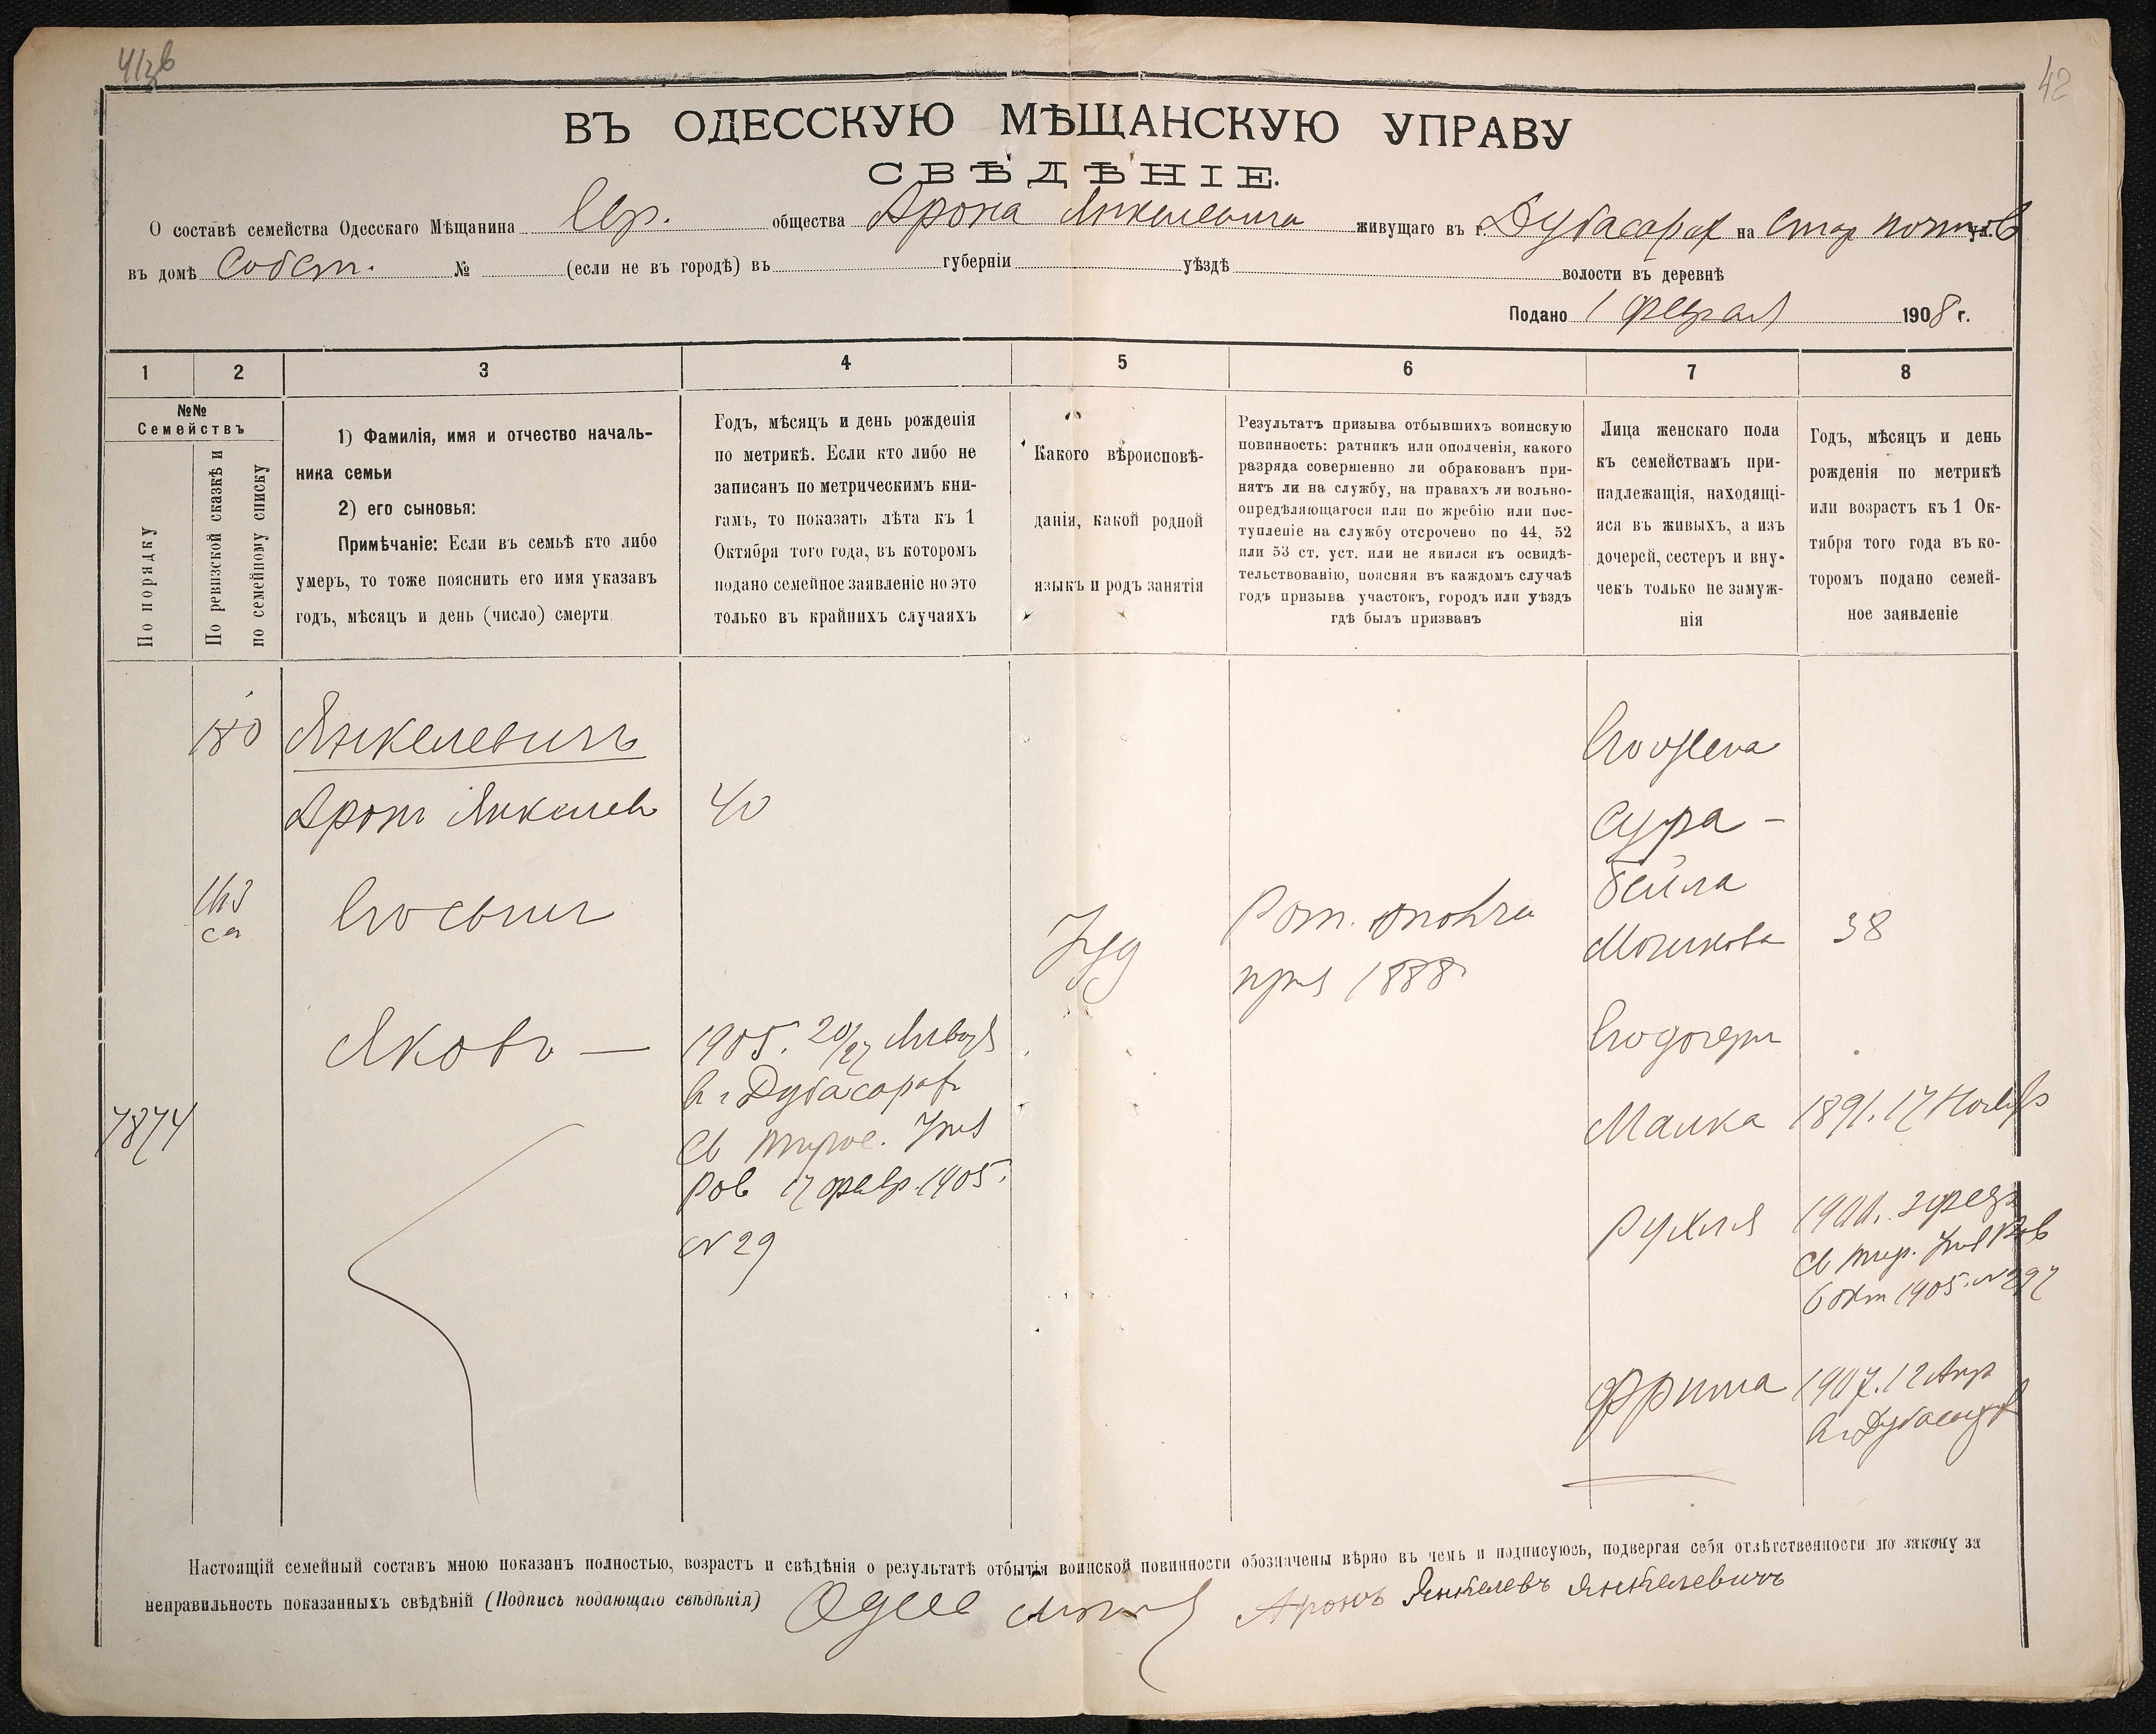 42
ВЪ ОДЕССКУЮ МѢЩАНСКУЮ УПРАВУ
СВѢДѢНІЕ.
О составѣ семейства Одесскаго Мѣщанина Евр. общества Арона Янкелевича живущаго въ г. Дубасарах на ул.
въ домѣ Собст. № (если не въ городѣ) въ губерніи уѣздѣ волости въ деревнѣ
Подано 1 Феврал 1908 г.
1 2 3 4 5 6 7 8
№№ Семействъ
По порядку
По ревизской сказкѣ и по семейному списку
1) Фамилія, имя и отчество началь-
ника семьи
2) его сыновья:
Примѣчаніе: Если въ семьѣ кто либо
умеръ, то тоже пояснить его имя указавъ
годъ, мѣсяцъ и день (число) смерти
Годъ, мѣсяцъ и день рожденія
по метрикѣ. Если кто либо не
записанъ по метрическимъ кни-
гамъ, то показать лѣта къ 1
Октября того года, въ которомъ
подано семейное заявленіе но это
только въ крайнихъ случаяхъ
Какого вѣроисповѣ-
данія, какой родной
языкъ и родъ занятія
Результатъ призыва отбывшихъ воинскую
повинность: ратникъ или ополченія, какого
разряда совершенно ли обракованъ при-
нятъ ли на службу, на правахъ ли вольно-
опредѣляющагося или по жребію или пос-
тупленіе на службу отсрочено по 44, 52
или 53 ст. уст. или не явился къ освидѣ-
тельствованію, поясняя въ каждомъ случаѣ
годъ призыва участокъ, городъ или уѣздъ
гдѣ былъ призванъ
Лица женскаго пола
къ семействамъ при-
надлежащія, находящі-
яся въ живыхъ, а изъ
дочерей, сестеръ и вну-
чекъ только не замуж-
нія
Годъ, мѣсяцъ и день
рожденія по метрикѣ
или возрастъ къ 1 Ок-
тября того года въ ко-
торомъ подано семей-
ное заявленіе
180 Янкелевичъ Его жена
Аронъ Янкелев 40 Сура –
Бейла
Его сынъ Иуд Рат. ополч Мошкова 38
1888
Яковъ — 1905. 20/27 Его дочери
в г Дубасарах
7874 Малка 1891. 17 Ноябр
17 февр. 1905.
№ 29
Рухля
6 окт 1905. № 297
Фрима 1907. 12 Апр
в г Дубасарах
Настоящій семейный составъ мною показанъ полностью, возрастъ и свѣдѣнія о результатѣ отбытія воинской повинности обозначены вѣрно въ чемъ и подписуюсь, подвергая себя отвѣтственности по закону за
неправильность показанныхъ свѣдѣній (Подпись подающаго свѣдѣнія) Аронъ Янкелевъ Янкелевичъ